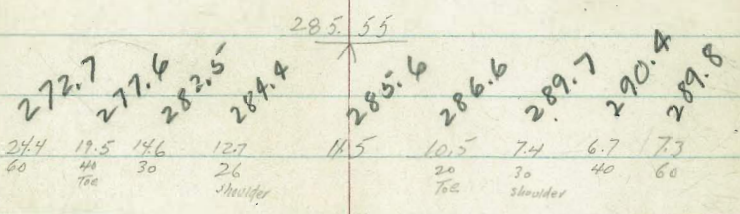 285.55
272.7 277.6 282.5 284.4 285.6 286.6 289.7 290.4 289.8
24.4 19.5 14.6 12.7 11.5 10.5 7.4 6.7 7.3
60 40 30 26 20 30 40 60
Toe shoulder Toe shoulder